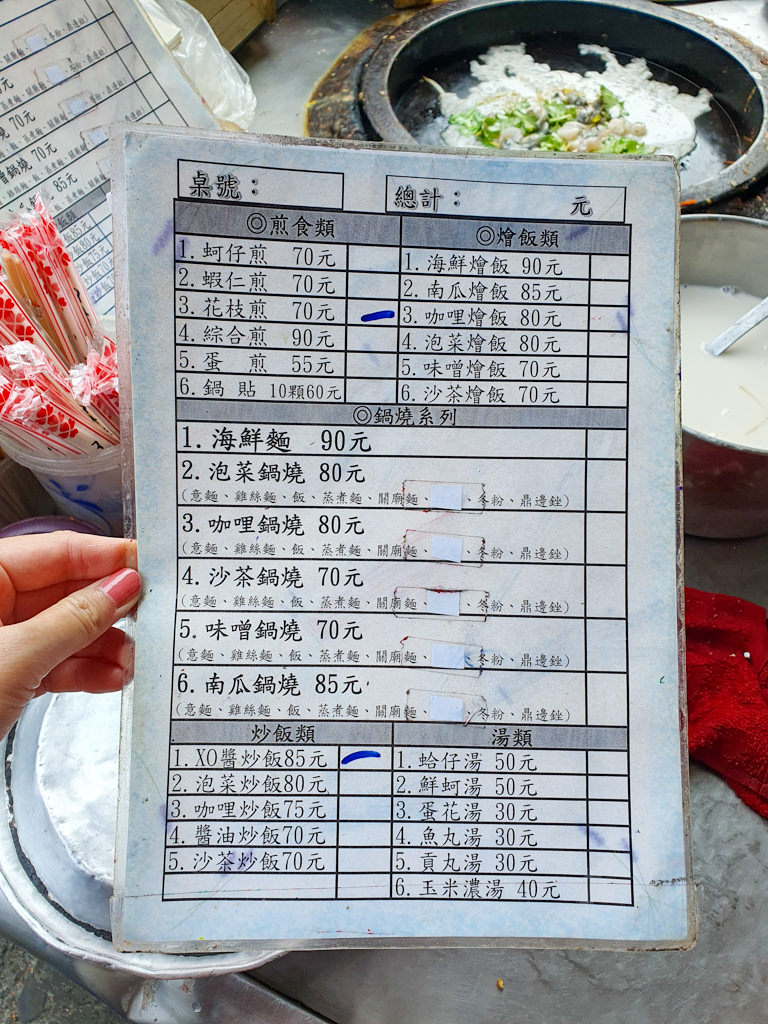 桌號：
總計： 元
◎煎食類
1.蚵仔煎 70元
2.蝦仁煎 70元
3.花枝煎 70元
4.綜合煎 90元
5.蛋 煎 55元
6.鍋 貼 10顆60元
◎燴飯類
1.海鮮燴飯 90元
2.南瓜燴飯 85元
3.咖哩燴飯 80元
4.泡菜燴飯 80元
5.味噌燴飯 70元
6.沙茶燴飯 70元
◎鍋燒系列
1.海鮮麵 90元
2.泡菜鍋燒 80元
(意麵、雞絲麵、飯、蒸煮麵、關廟麵、冬粉、鼎邊銼)
3.咖哩鍋燒 80元
(意麵、雞絲麵、飯、蒸煮麵、關廟麵、冬粉、鼎邊銼)
4.沙茶鍋燒 70元
(意麵、雞絲麵、飯、蒸煮麵、關廟麵、冬粉、鼎邊銼)
5.味噌鍋燒 70元
(意麵、雞絲麵、飯、蒸煮麵、關廟麵、冬粉、鼎邊銼)
6.南瓜鍋燒 85元
(意麵、雞絲麵、飯、蒸煮麵、關廟麵、冬粉、鼎邊銼)
炒飯類
1.XO醬炒飯85元
2.泡菜炒飯80元
3.咖哩炒飯75元
4.醬油炒飯70元
5.沙茶炒飯70元
湯類
1.蛤仔湯 50元
2.鮮蚵湯 50元
3.蛋花湯 30元
4.魚丸湯 30元
5.貢丸湯 30元
6.玉米濃湯 40元